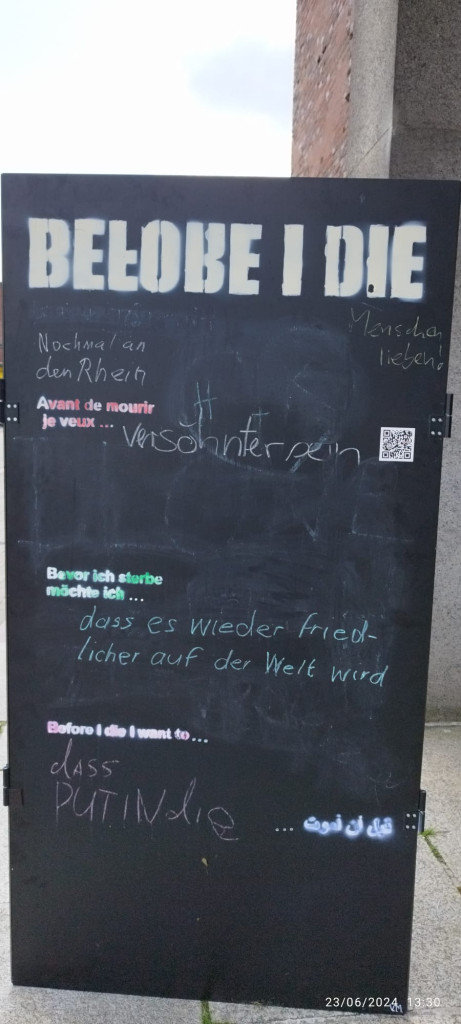 BEFORE I DIE
Menschen
lieben!
Nochmal an
den Rhein
Avant de mourir
je veux ...
versöhnter sein
Bevor ich sterbe
möchte ich ...
dass es wieder fried-
licher auf der Welt wird
Before I die I want to ...
dASS
PUTIN die
قبل أن نموت ...
23/06/2024 13:30